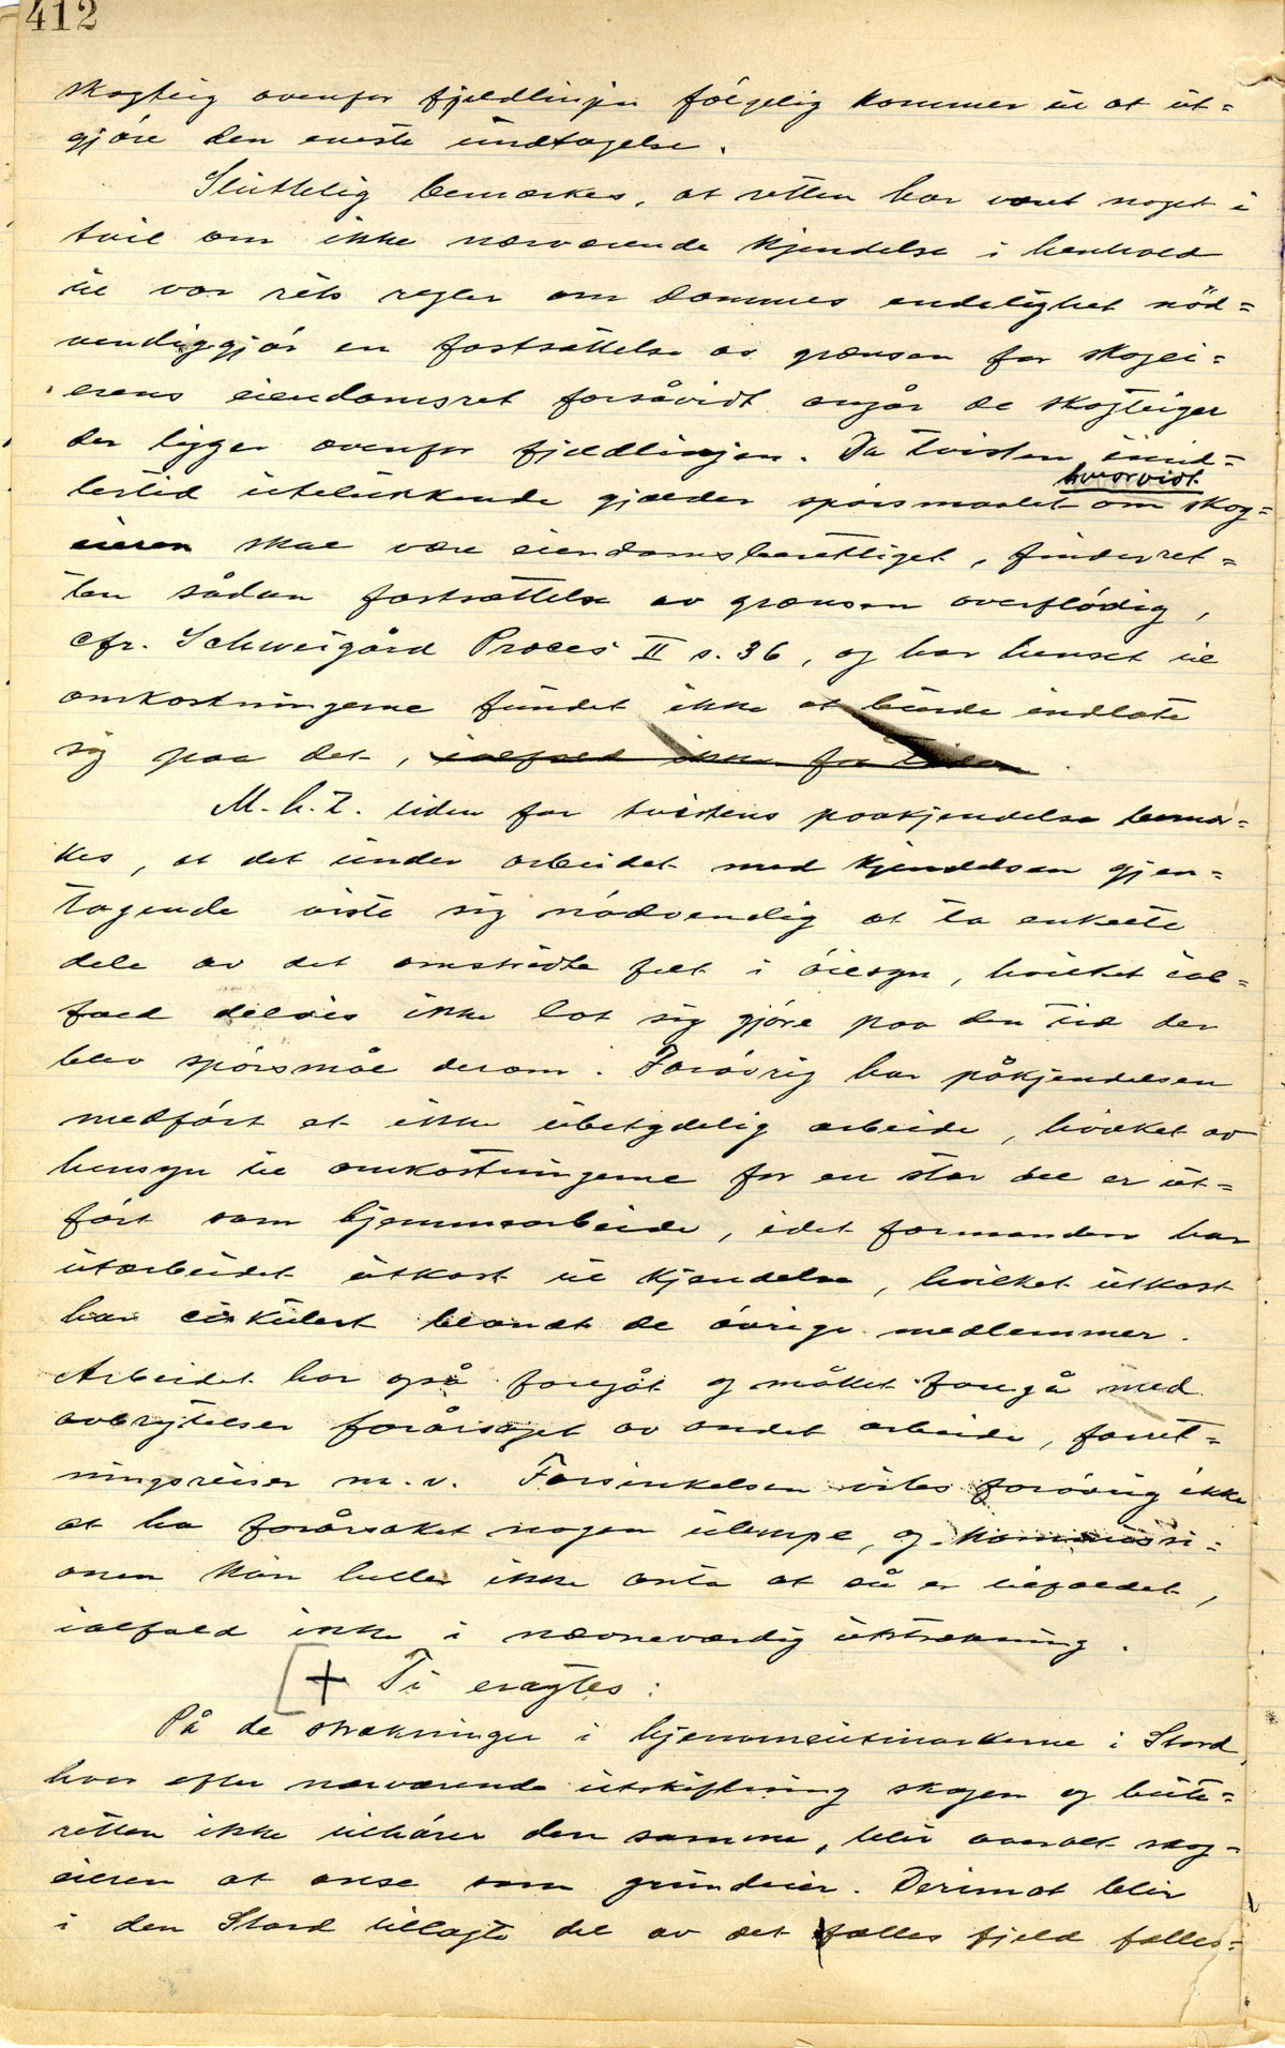 412
skogteig ovenfor fjeldlinjen følgelig kommer til at ut=
gjøre den eneste undtagelse.
Sluttelig bemærkes, at retten har været noget i
tvil om ikke nærværende kjendelse i henhold
til vor rets regler om dommes endelighet nød=
vendiggjør en fastsættelse av grænsen for skogei=
erens eiendomsret forsåvidt angår de skogteiger
der ligger ovenfor fjeldlinjen. Da tvisten imid=
lertid utelukkende gjælder spørsmaalet om hvorvidt skog=
eieren skal være eiendomsberettiget, finder ret=
ten sådan fastsættelse av grænsen overflødig,
cfr. Schweigård Proces II s. 36, og har henset til
omkostningerne fundet ikke at burde indlate
sig paa det, ialfald ikke for tiden.
M. h. t. tiden for tvistens paakjendelse bemær=
kes, at det under arbeidet med kjendelsen gjen=
tagende viste sig nødvendig at ta enkelte
dele av det omstridte felt i øiesyn, hvilket ial=
fald delvis ikke lot sig gjøre paa den tid der
blev spørsmål derom. Forøvrig har påkjendelsen
medført et ikke ubetydelig arbeide, hvilket av
hensyn til omkostningerne for en stor del er ut=
ført som hjemmearbeide, idet formanden har
utarbeidet utkast til kjendelse, hvilket utkast
har cirkulert blandt de øvrige medlemmer.
Arbeidet har også foregåt og måttet foregå med
avbrytelser forårsaget av andet arbeide, forret=
ningsreiser m.v. Forsinkelsen vites forøvrig ikke
at ha forårsaket nogen ulempe, og kommissi=
onen kan heller ikke anta at så er tilfældet,
ialfald ikke i nævneværdig utstrækning.
[+ Ti eragtes:
På de strækninger i hjemmeutmarkerne i Stord
hvor efter nærværende utskiftning skogen og beite=
retten ikke tilhører den samme, blir overalt skog=
eieren at anse som grundeier. Derimot blir
i den Stord tillagte del av det fælles fjeld fælles=